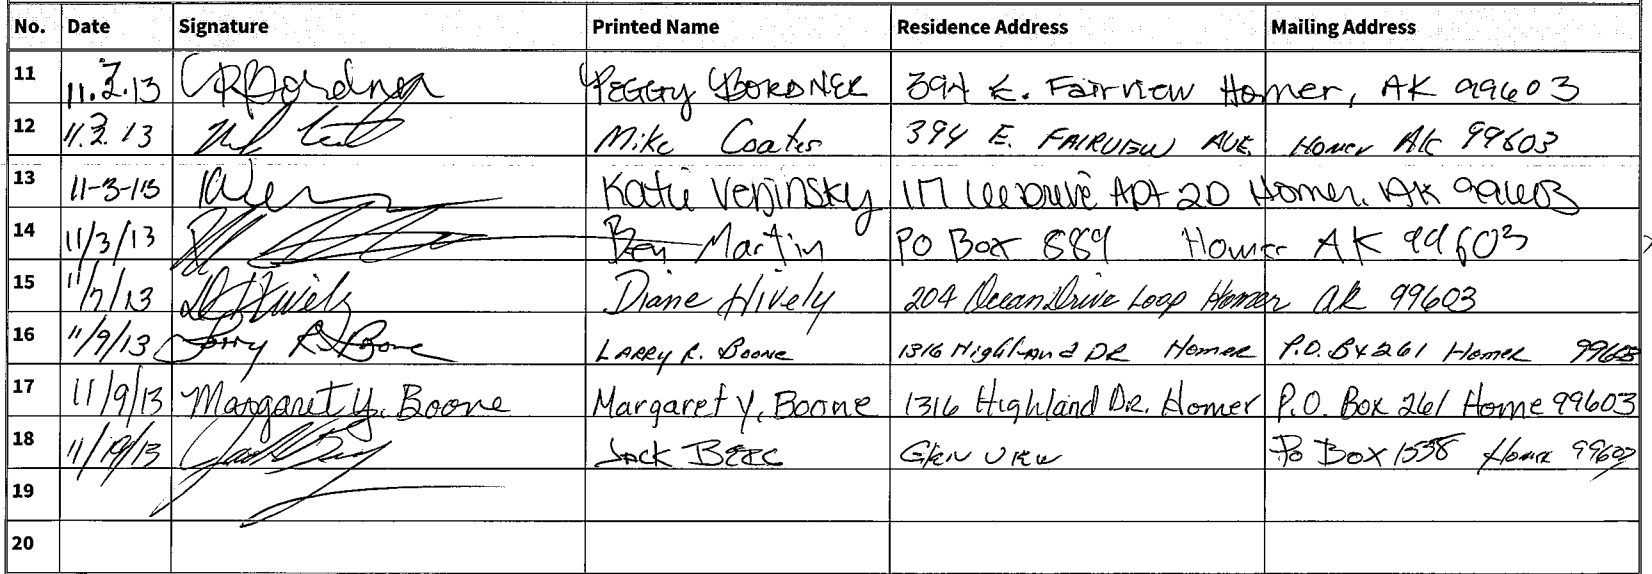 No. Date Signature Printed Name Residence Address Mailing Address
11 11.2.13 PRBordner PEGGY BORDNER 394 E. Fairview Homer, AK 99603
12 11.2.13 Mike Coates 394 E. FAIRVIEW AVE. Homer AK 99603
13 11-3-13 Katie 117 Lee Drive Apt 2D Homer, AK 99603
14 11/3/13 Ben Martin PO Box 889 Homer AK 99603
15 11/7/13 D Hively Diane Hively 204 Ocean Drive Loop Homer AK 99603
16 11/9/13 Larry R. Boone LARRY R. Boone 1316 Highland DR Homer P.O. Bx 261 Homer 99603
17 11/9/13 Margaret Y. Boone Margaret Y. Boone 1316 Highland DR. Homer P.O. Box 261 Home 99603
18 11/19/13 Jack Glen View Po Box 1538 Homer 99603
19
20